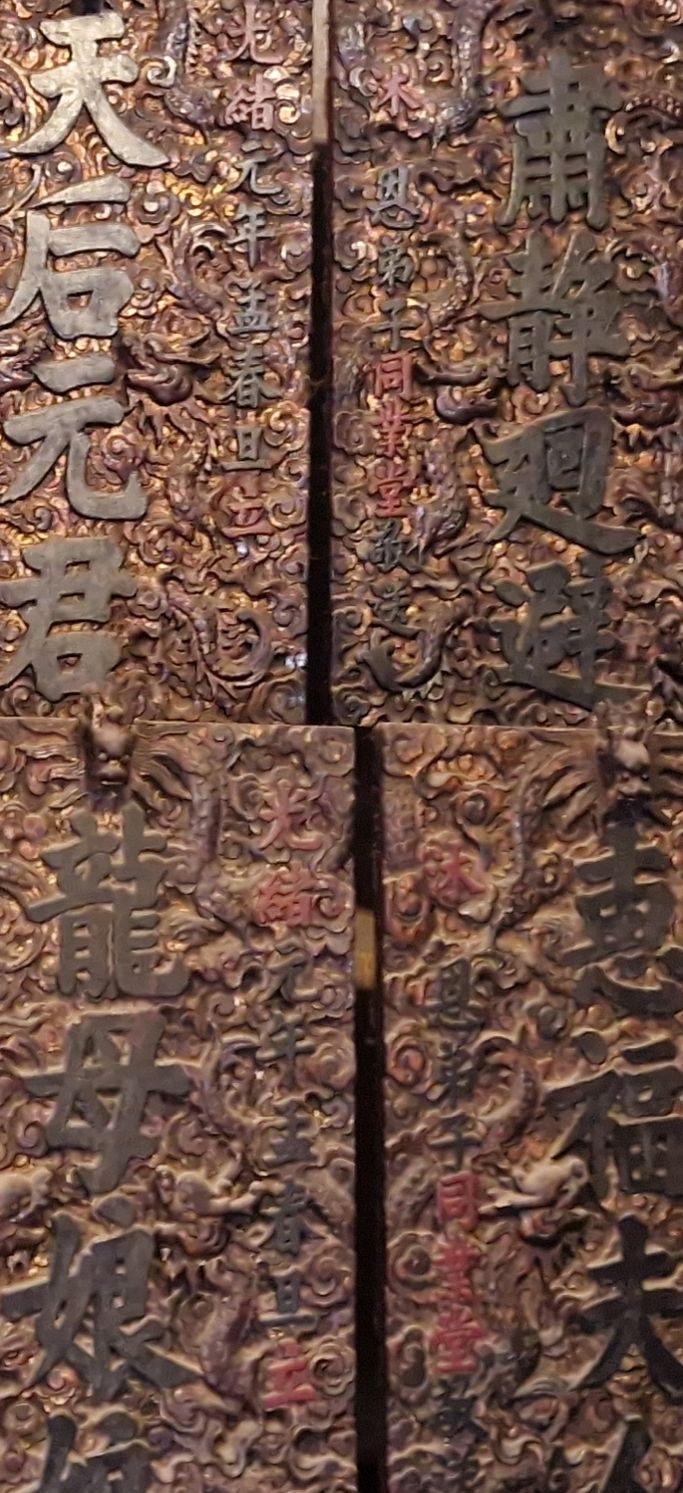 肅静廻避
沐恩弟子同業堂敬送
光緒元年孟春旦立
天后元君
惠福夫人
沐恩弟子同業堂
光緒元年孟春旦立
龍母娘娘